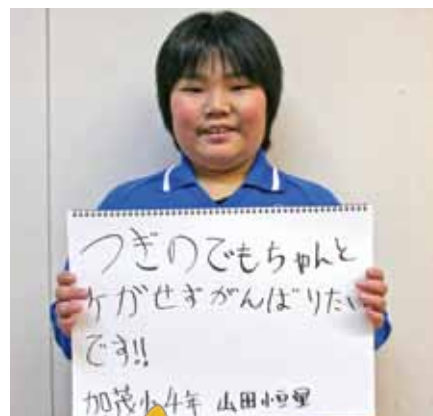 つぎのでもちゃんと
ケガせずがんばりたい
です!!
加茂小4年 山田恒星